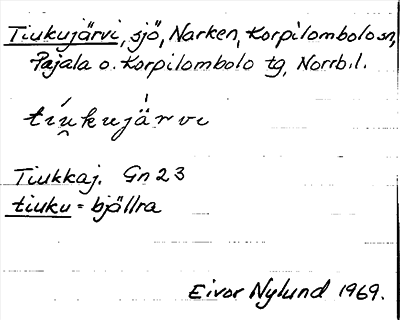 Tiukujärvi, sjö, Narken, Korpilombolo sn,
Pajala o. Korpilombolo tg, Norrb. l.
tíu̯kujä̀rvi
Tiukkaj. Gn 23
tiuku = bjällra
Eivor Nylund 1969.